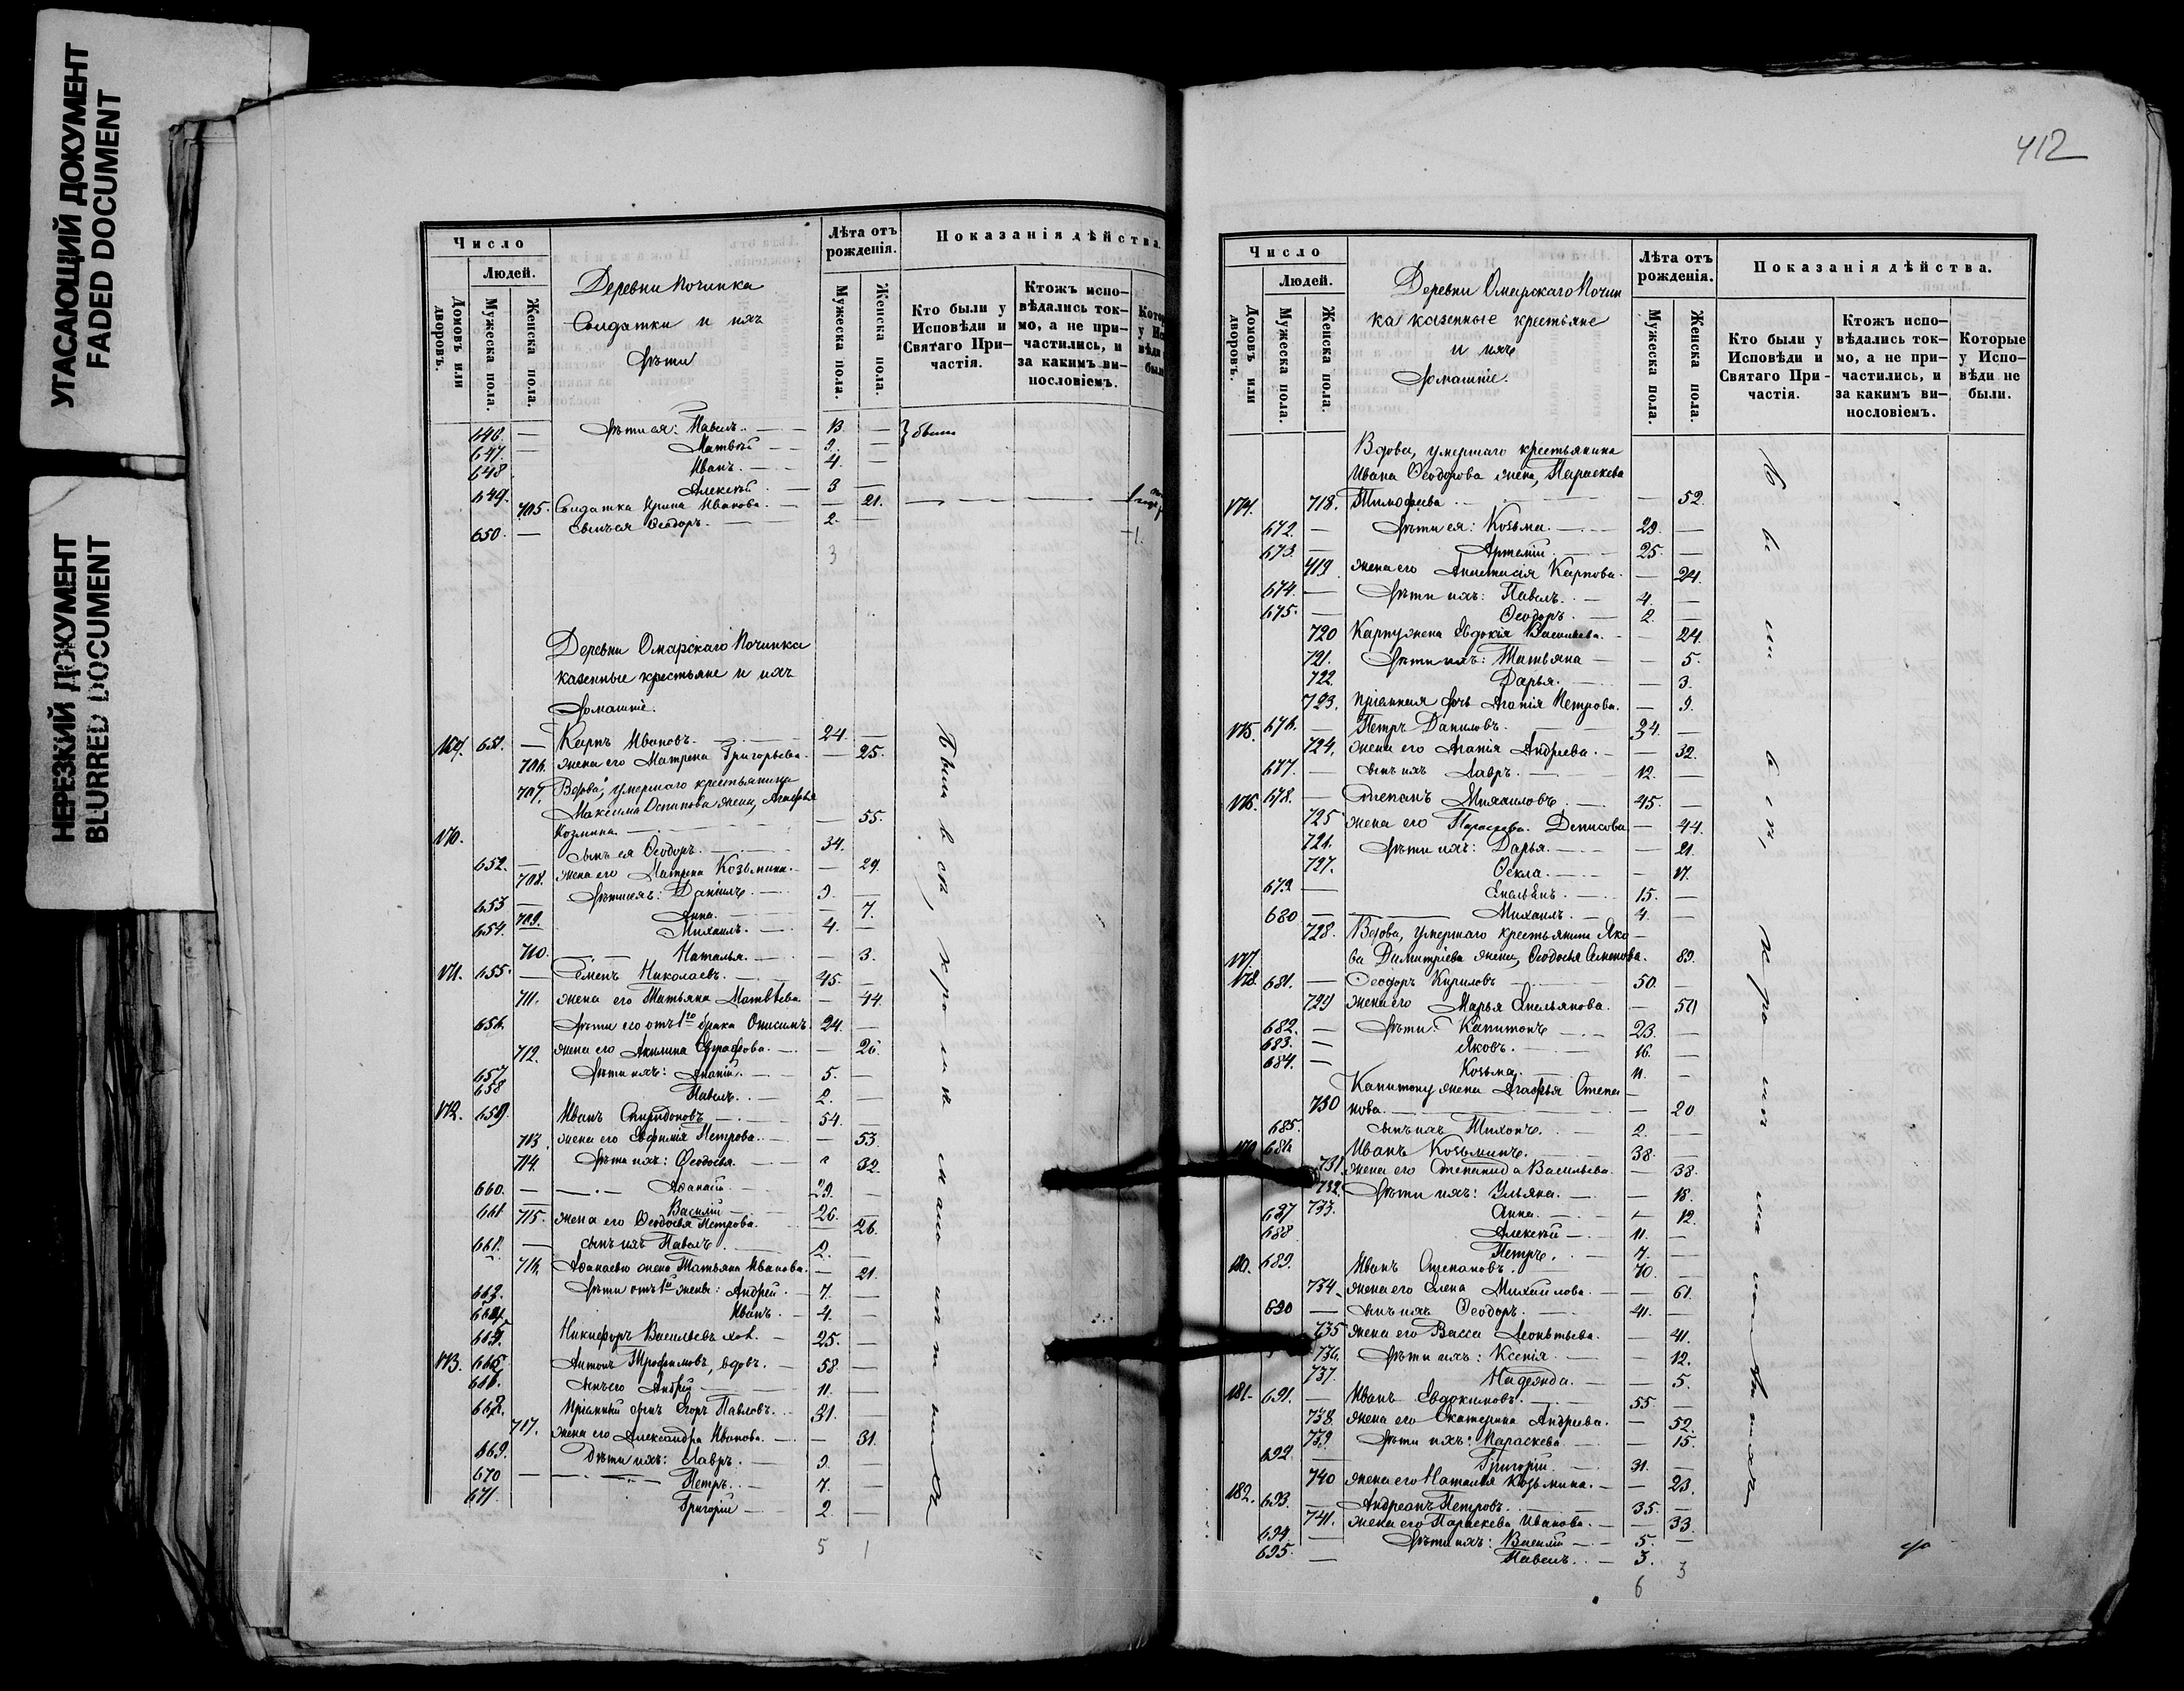 УГАСАЮЩИЙ ДОКУМЕНТ
FADED DOCUMENT
НЕРЕЗКИЙ ДОКУМЕНТ
BLURRED DOCUMENT
Число
Людей.
Домовъ или дворовъ.
Мужеска пола.
Женска пола.
Деревни Починка
Солдатки и ихъ
дѣти
Лѣта отъ рожденія.
Мужеска пола.
Женска пола.
Показанія дѣйства.
Кто были у Исповѣди и Святаго Причастія.
Ктожъ исповѣдались токмо, а не причастились, и за какимъ винословіемъ.
646. — дѣти ея: Павелъ. — 13. —
647. — Матвѣй — 9. —
648. Иванъ. — 4. —
649. Алексѣй — 3 —
были
705. Солдатка Ирина Иванова. — — 21.
650. — сынъ ея Ѳеодоръ. — 2. —
3
Деревни Омарскаго Починка
казенные крестьяне и ихъ
домашніе.
169. 651. — Карпъ Ивановъ. — 24. —
706. жена его Матрена Григорьева. — 25.
707. Вдова, умершаго крестьянина
Максима Осипова жена, Агафья
Козмина. — — 55.
170. 652. — сынъ ея Ѳеодоръ. — 34.
708. жена его Матрена Козьмина. — 29.
653 — дѣти ихъ: Даніилъ. — 9. —
709. Анна. — — 7.
654. Михаилъ. — 4. —
710. Наталья. — — 3.
171. 655. — Семенъ Николаевъ. — 45. —
711. жена его Татьяна Матвѣева — 44.
656. дѣти его отъ 1го брака Онисимъ. 24. —
712. жена его Акилина Евграфова. — 26.
657 дѣти ихъ: Ананій. — 5. —
658 Павелъ. — 2. —
172. 659. Иванъ Спиридоновъ — 54. —
713. жена его Евфимія Петрова. — 53.
714. дѣти ихъ: Ѳеодосья. — 32.
660. — Аѳанасій — 29. —
661 Василій — 26. —
715. жена его Ѳеодосья Петрова. — 26.
662. — сынъ ихъ Павелъ. 2. —
716. Аѳанасею жена Татьяна Иванова. — 21.
663. дѣти отъ 1й жены: Андрей. — 7. —
664. Иванъ. — 4. —
Никифоръ Васильевъ хол. — 25. —
173. 665 Антонъ Трофимовъ, вдовъ. — 58 —
666. сынъ его Андрей — 11. —
Пріемный сынъ Егоръ Павловъ. 31. —
717. жена его Александра Иванова. — — 31.
669. Дѣти ихъ: Лавръ. — 9. —
670 — Петръ. — 7. —
671. Григорій — 2. —
5 1
412
Число
Людей.
Домовъ или дворовъ.
Мужеска пола.
Женска пола.
Деревни Омарскаго Почин
ка казенные крестьяне
и ихъ
домашніе.
Лѣта отъ рожденія.
Мужеска пола.
Женска пола.
Показанія дѣйства.
Кто были у Исповѣди и Святаго Причастія.
Ктожъ исповѣдались токмо, а не причастились, и за какимъ винословіемъ.
Которые у Исповѣди не были.
Вдова, умершаго крестьянина
Ивана Ѳеодорова жена, Параскева
174. 718. Тимофеева — — 52.
672. — дѣти ея: Козьма. — 29. —
673. — Артемій — 25. —
719 жена его Анастасія Карпова. — 24.
674. — дѣти ихъ: Павелъ. — 4. —
675. — Ѳеодоръ. — 2. —
720 Карпу жена Евдокія Васильева. — 24.
721. дѣти ихъ: Татьяна — — 5.
722. Дарья. — — 3.
723. пріемная дочь Агапія Петрова. — 9.
175. 676. — Петръ Даниловъ. 34. —
724. жена его Агапія Андреева. — — 32.
677. — сынъ ихъ Лавръ. — 12. —
176. 678. — Степанъ Михаиловъ. — 45. —
725 жена его Параскева Денисова — 44.
726. дѣти ихъ: Дарья. — — 21.
727. Ѳекла. — — 17.
679 — Емельянъ. — 15. —
680. — Михаилъ. — 4. —
728. Вдова, умершаго крестьянина Яко
177. ва Димитріева жена, Ѳеодосья Семенова. 89.
178. 681. — Ѳеодоръ Кириловъ — 50. —
729 жена его Марья Емельянова. — 50
682. — дѣти: Капитонъ — 23. —
683. — Яковъ. — 16. —
684. — Козьма. — 11. —
Капитону жена Агафья Степа
730 нова. — — 20
685. сынъ ихъ Тихонъ. 2. —
179. 686 Иванъ Козьминъ. — 38. —
731. жена его Степанида Васильева. — 38.
732. дѣти ихъ: Ульяна. — — 18.
733. Анна. — — 12.
687 Алексѣй — 11. —
688 Петръ. — 7. —
180. 689. Иванъ Степановъ. 70. —
734. жена его Елена Михайлова. — — 61.
690 — сынъ ихъ Ѳеодоръ. — 41. —
735 жена его Васса Леонтьева. — 41.
736. дѣти ихъ: Ксенія. — — 12.
737. Надежда. — — 5.
181. 691. — Иванъ Евдокимовъ. — 55 —
738. жена его Екатерина Андреева. — 52.
739. дѣти ихъ: Параскева — — 15.
692 — Григорій. — 31. —
740 жена его Наталья Козьмина. — — 23.
182. 693. — Андреанъ Петровъ. — 35. —
741. жена его Параскева Иванова. — — 33.
694 — дѣти ихъ: Василій — 5. —
695. — Павелъ. — 3.
6 3